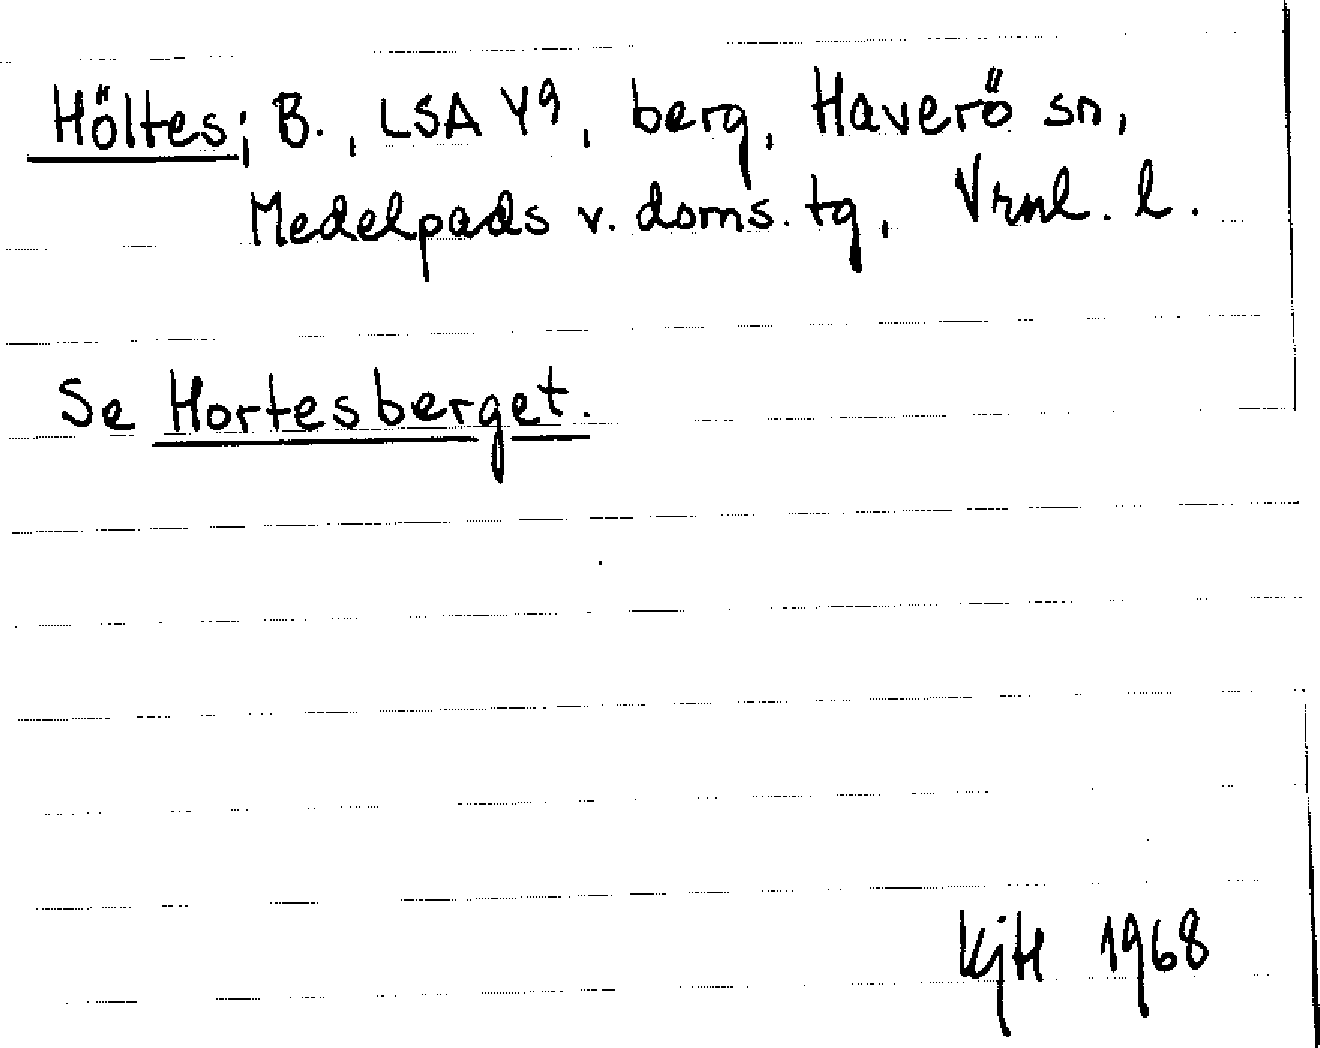 Höltes; B., LSA Y9, berg, Haverö sn,
Medelpads v. doms. tg, Vrnl. l.
Se Hortesberget.
KjH 1968